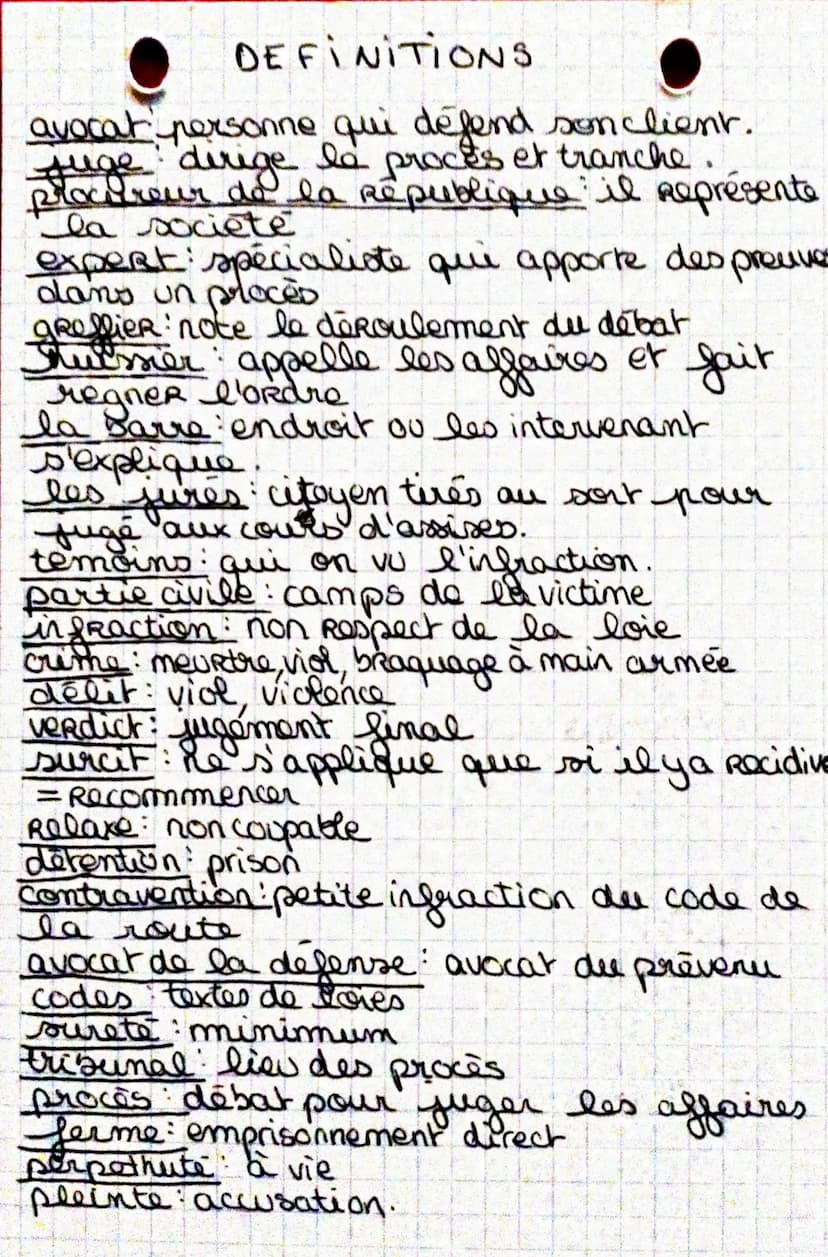 DEFINITIONS
avocat : personne qui défend son client.
juge : dirige le procès et tranche.
procureur de la République : il représente
la société
expert : spécialiste qui apporte des preuves
dans un procès
greffier : note le déroulement du débat
huissier : appelle les affaires et fait
regner l'ordre
la barre : endroit ou les intervenant
s'explique.
les jurés : citoyen tirés au sort pour
jugé aux cours d'assises.
témoins : qui on vu l'infraction.
partie civile : camps de la victime
infraction : non respect de la loie
crime : meurtre, viol, braquage à main armée
délit : viol, violence
verdict : jugément final
surcit : ne s'applique que si il y a récidive
= recommencer
Relaxe : non coupable
détention : prison
contravention : petite infraction du code de
la route
avocat de la défense : avocat du prévenu
codes : textes de loies
sureté : minimum
tribunal : lieu des procès
procès : débat pour juger les affaires
ferme : emprisonnement direct
perpethuté : à vie
pleinte : accusation.